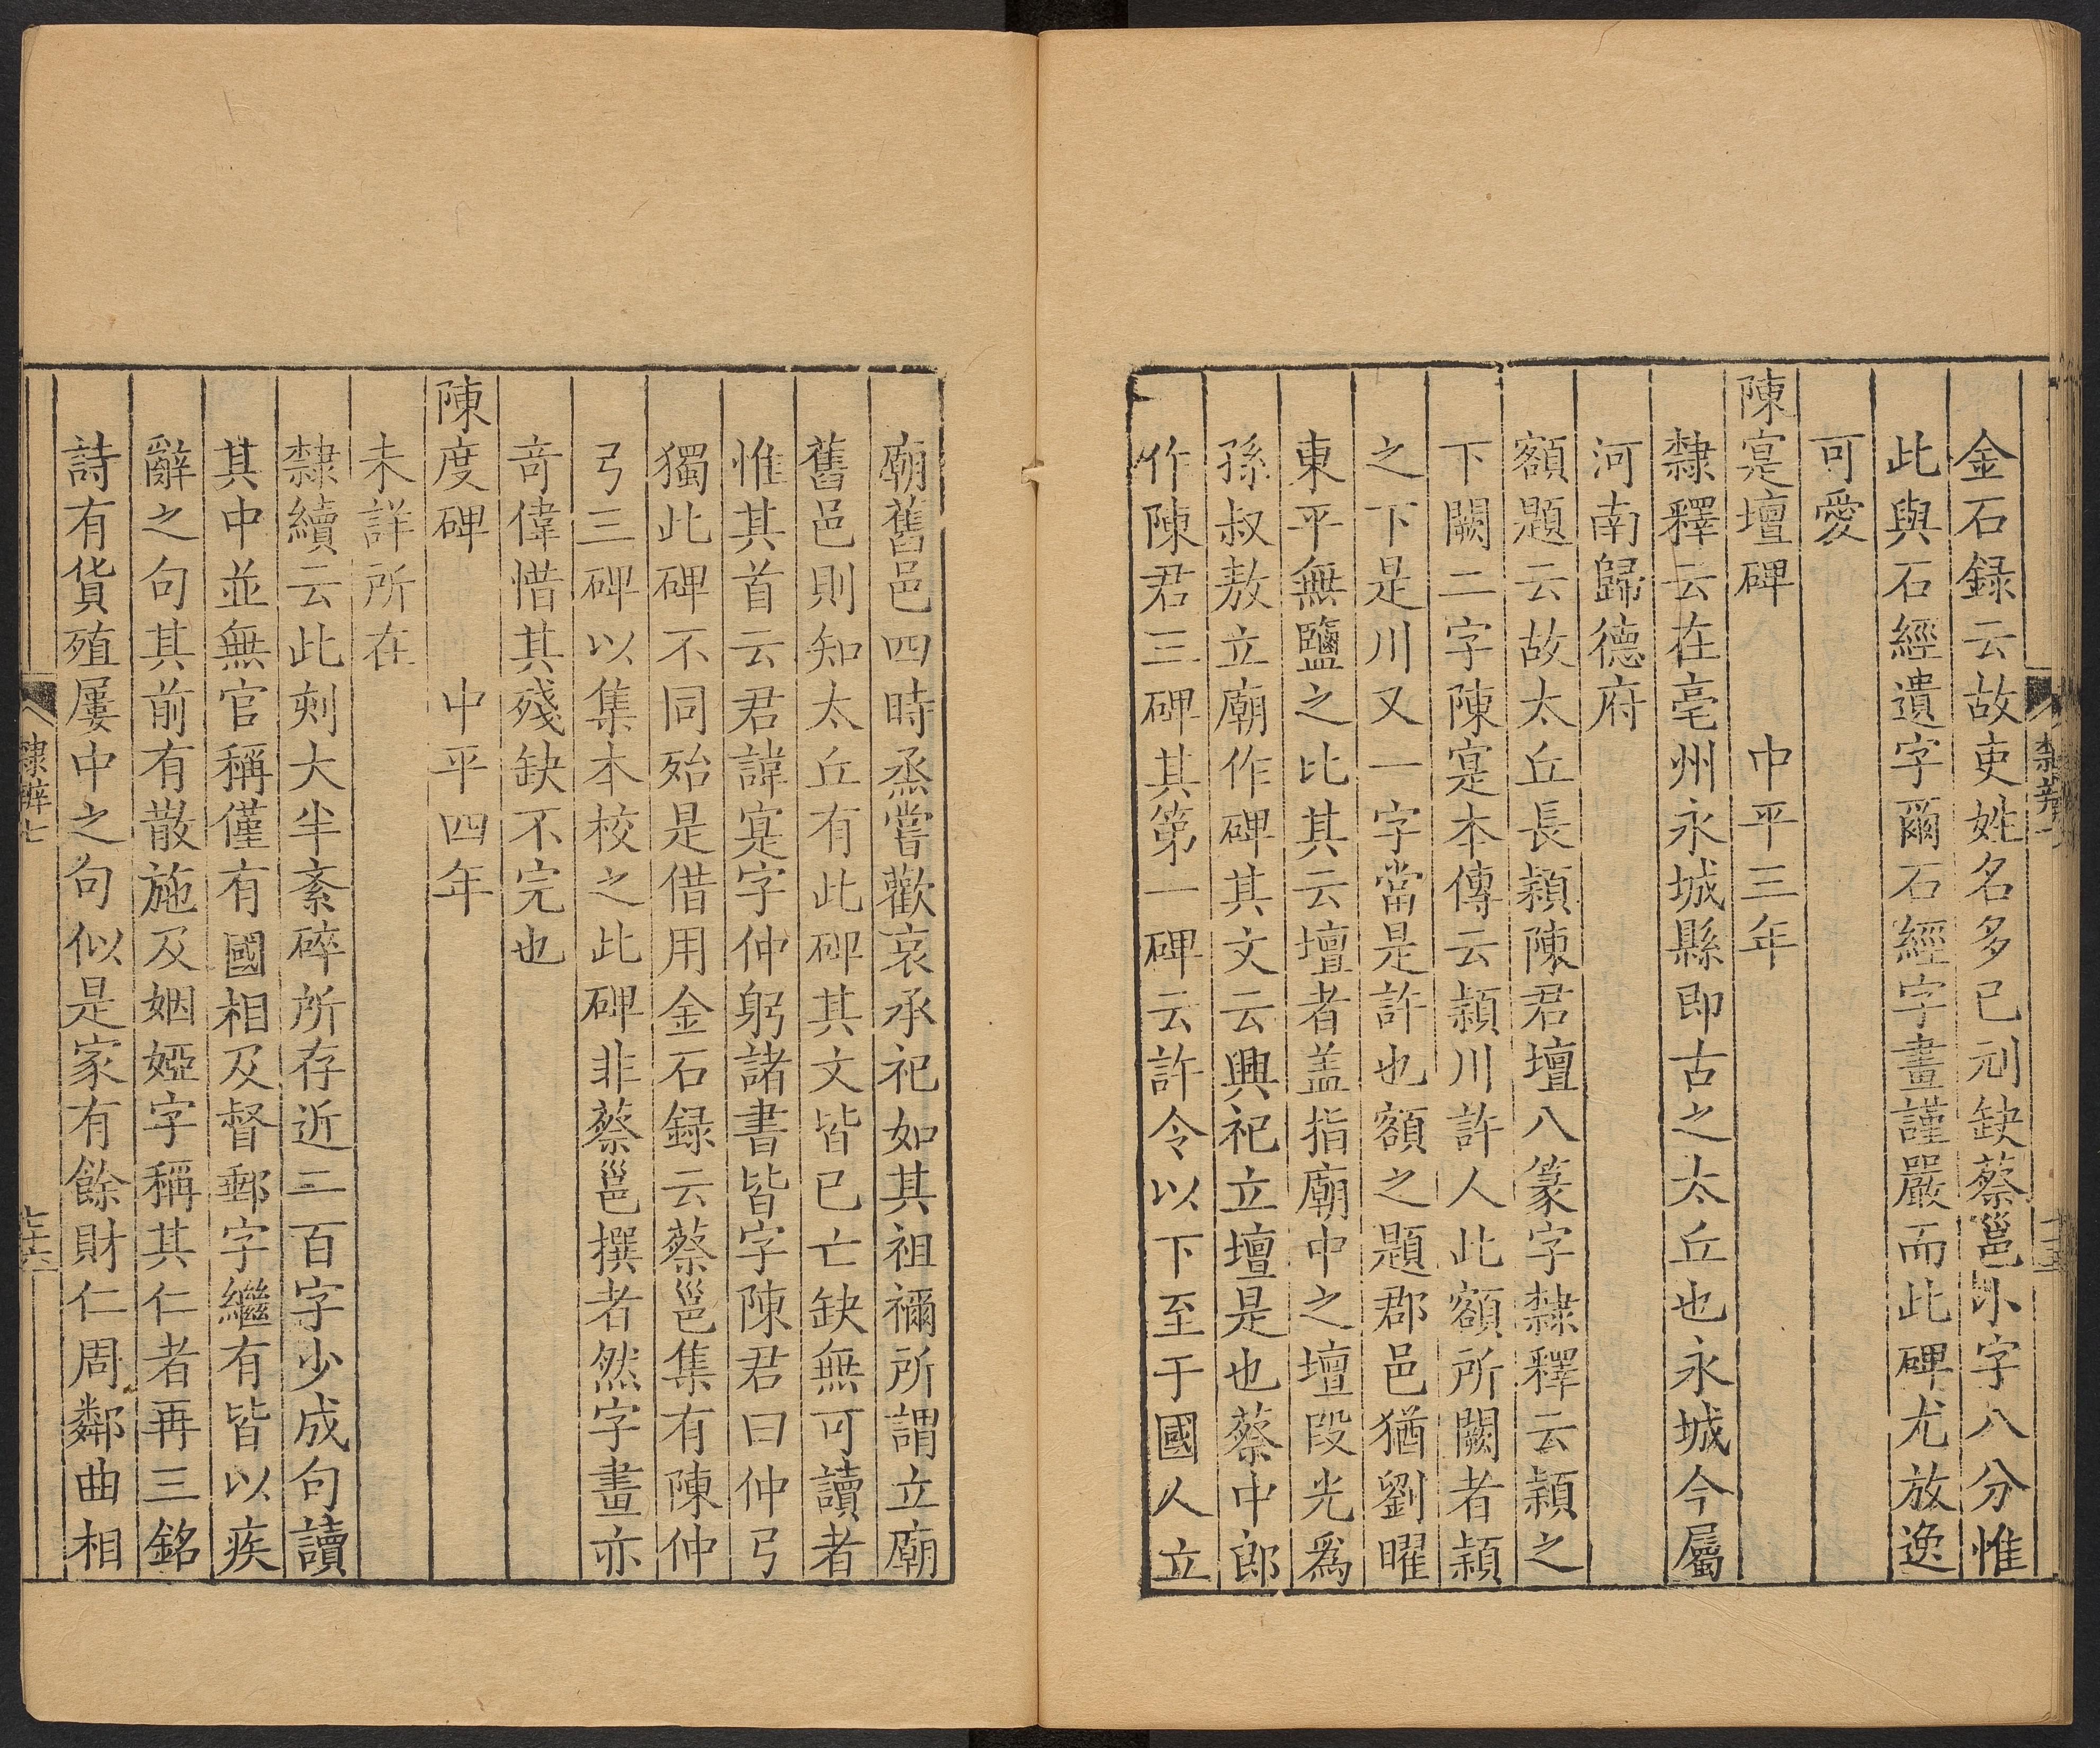 金石録云故吏姓名多已刓缺蔡邕小字八分惟
此與石經遺字爾石經字畫謹嚴而此碑尤放逸
可愛
陳寔壇碑 中平三年
隸釋云在亳州永城縣即古之太丘也永城今屬
河南歸德府
額題云故太丘長潁陳君壇八篆字隸釋云潁之
下闕二字陳寔本傳云潁川許人此額所闕者潁
之下是川又一字當是許也額之題郡邑猶劉曜
東平無鹽之比其云壇者盖指廟中之壇段光爲
孫叔敖立廟作碑其文云興祀立壇是也蔡中郎
作陳君三碑其第一碑云許令以下至于國人立
廟舊邑四時烝嘗歡哀承祀如其祖禰所謂立廟
舊邑則知太丘有此碑其文皆已亡缺無可讀者
惟其首云君諱寔字仲躬諸書皆字陳君曰仲弓
獨此碑不同殆是借用金石録云蔡邕集有陳仲
弓三碑以集本校之此碑非蔡邕撰者然字畫亦
奇偉惜其殘缺不完也
陳度碑 中平四年
未詳所在
隸續云此刻大半紊碎所存近三百字少成句讀
其中並無官稱僅有國相及督郵字繼有皆以疾
辭之句其前有散施及姻婭字稱其仁者再三銘
詩有貨殖屢中之句似是家有餘財仁周鄰曲相
隸辨七
七十六